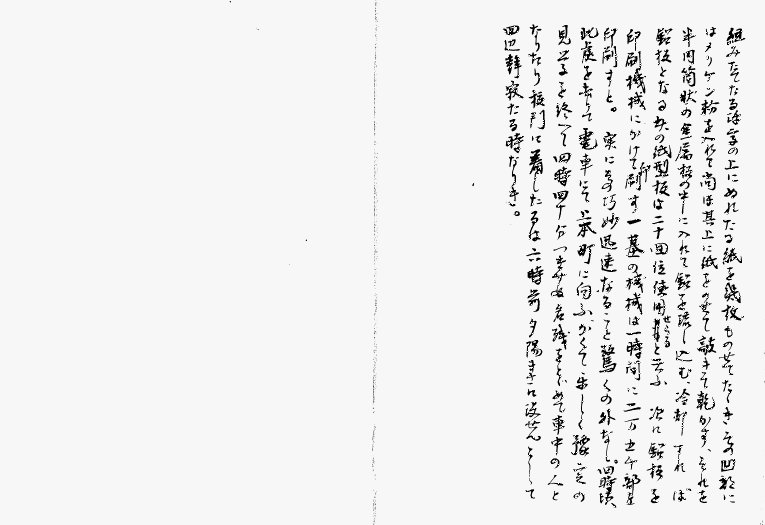 組みたてたる活字の上にぬれたる紙を幾枚ものせてたゝき其の凹部に
はメリケン粉を入れて尚ほ其上に紙をのせて敲きて乾かす、それを
半円筒状の金属板の中に入れて鉛を流し込む、冷却すれば
鉛板となる其の紙型板は二十回位使用せらると云ふ 次に鉛板を
印刷機械にかけて印刷す、一基の機械は一時間に二万五千部を
印刷すと。 実に其の巧妙迅速なること驚くの外なし。四時頃、
此処を去りて電車にて上本町に向ふ、かくて楽しく予定の
見学を終へて四時四十分つきせぬ名残をとゞめて車中の人と
なりたり 校門に着したるは六時前 夕陽まさに没せんとして
四辺静寂たる時なりき。